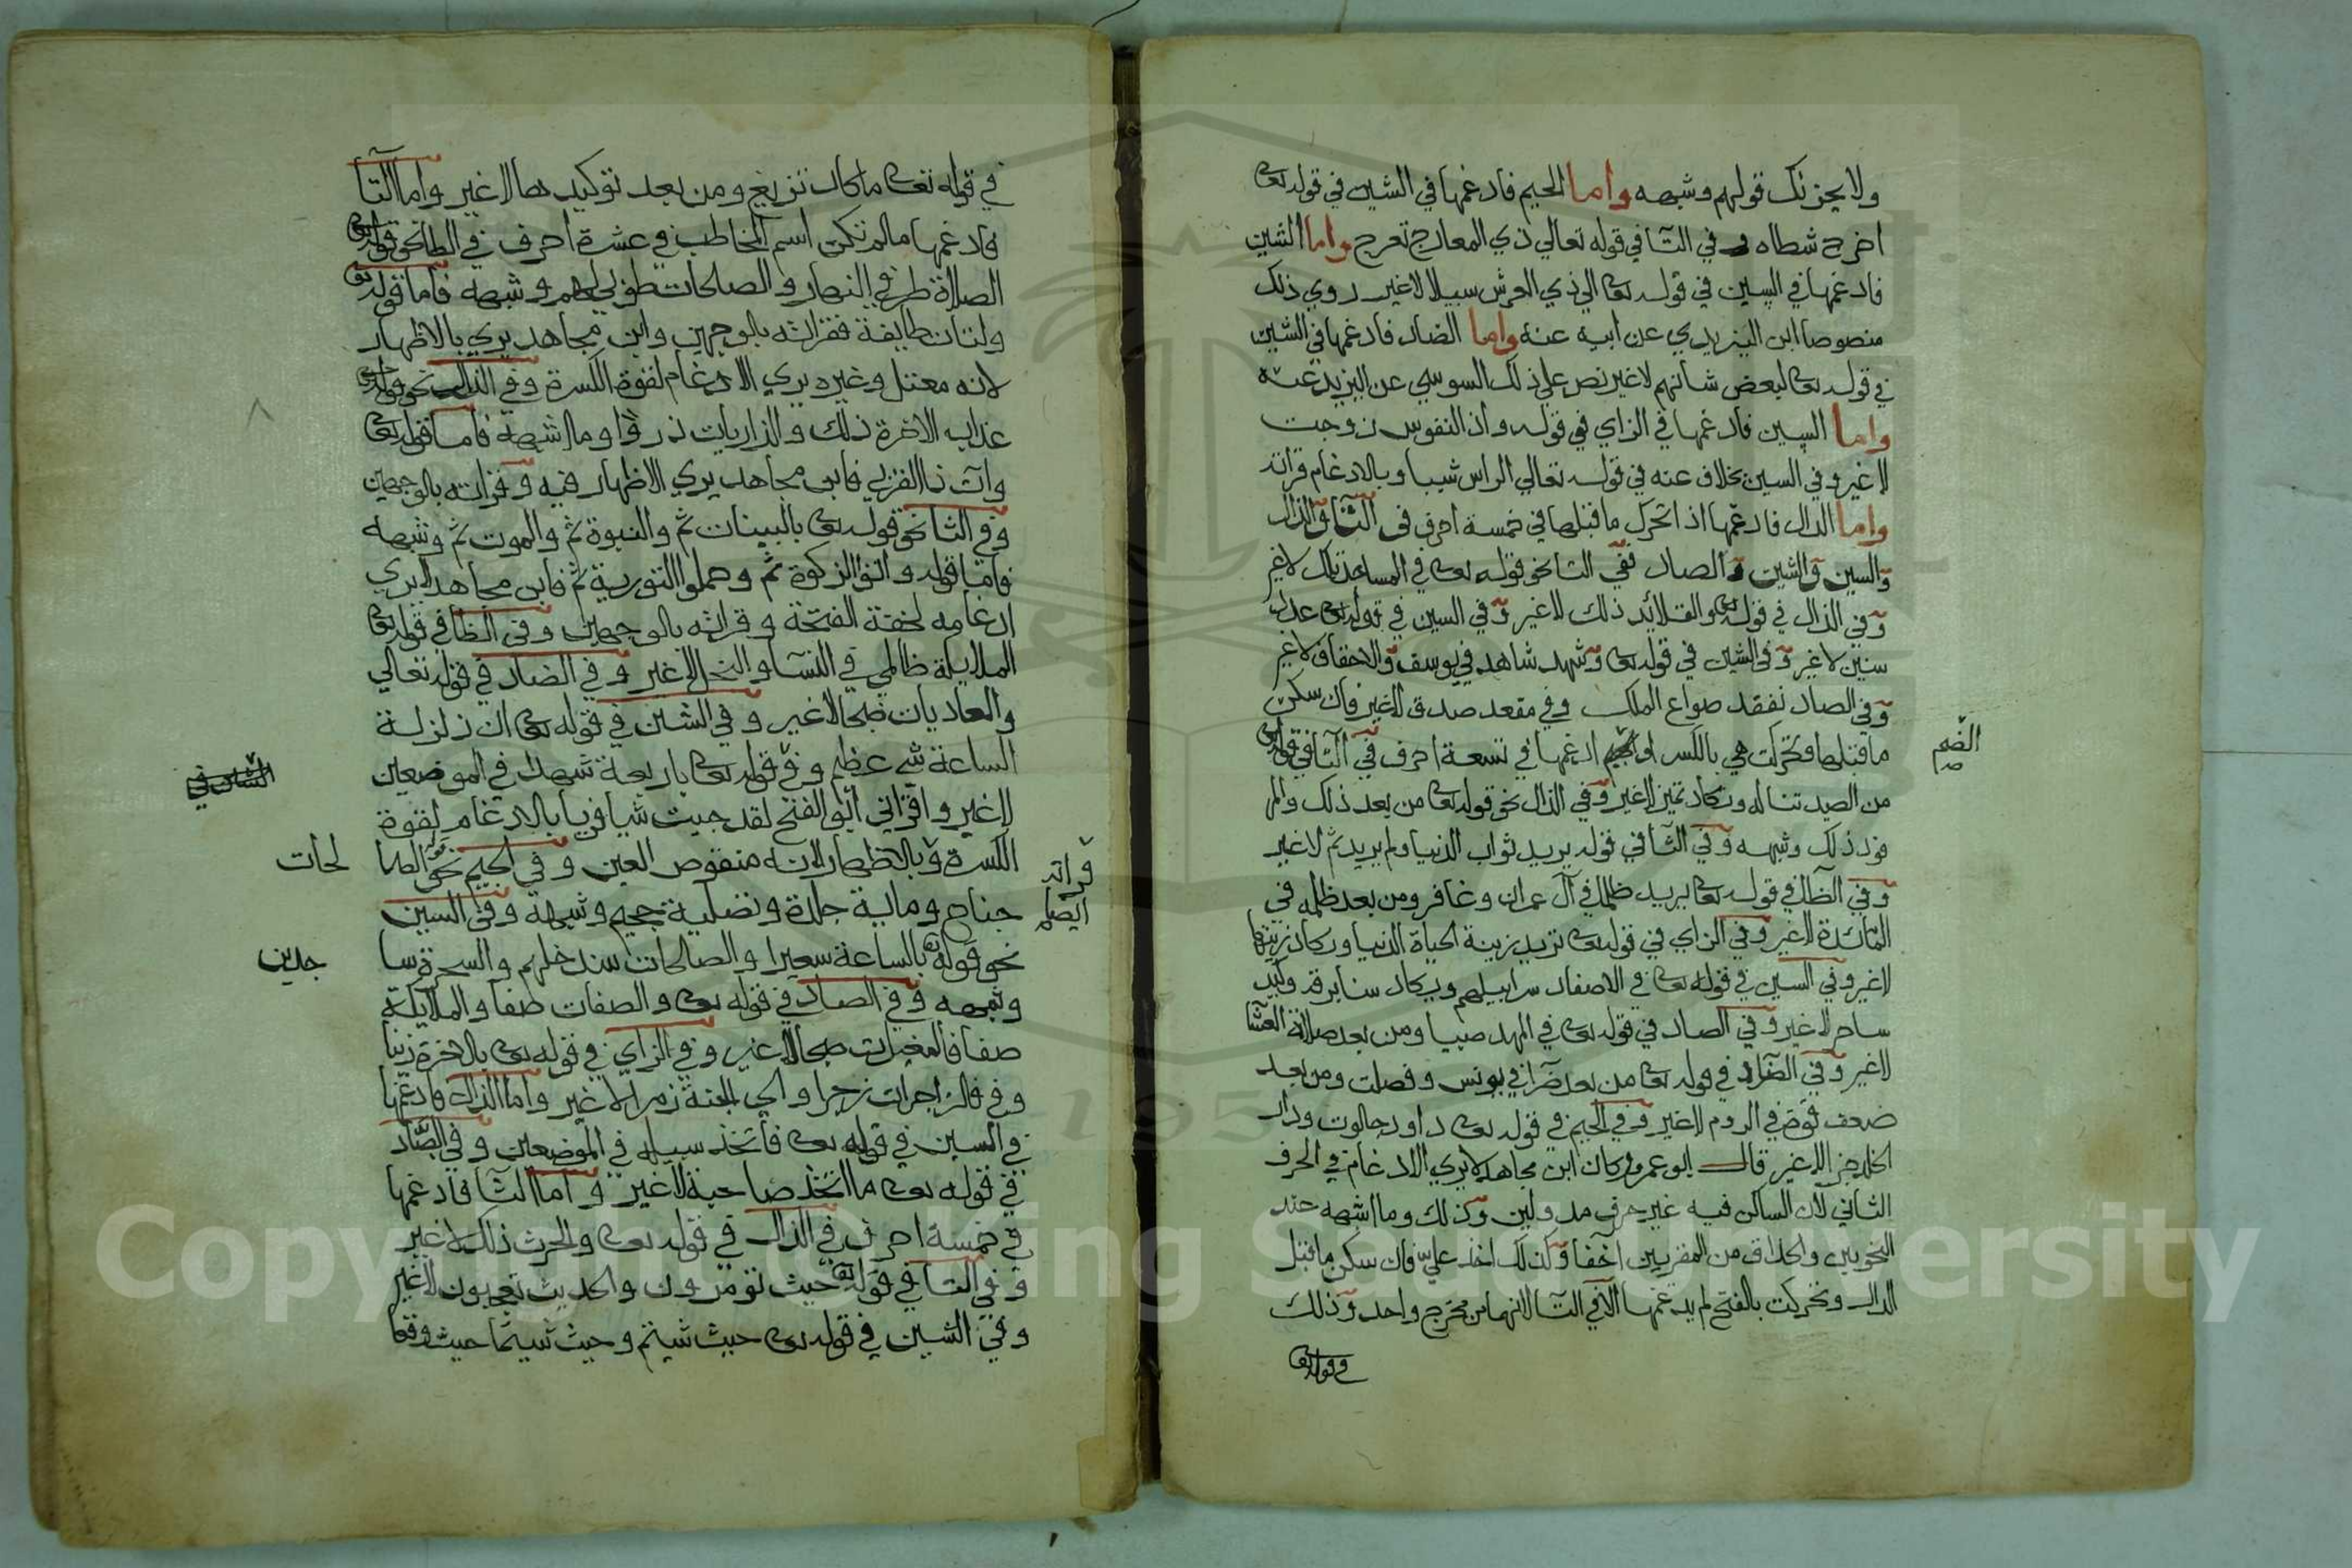 ولا يحزنك قولهم وشبهه واما الجيم فادغمها في الشين في قوله تعا
اخرج شطاه وفي التا في قوله تعالي ذي المعارج تعرج واما الشين
فادغمها في السين في قوله تعا الي ذي العرش سبيلا لاغير روي ذلك
منصوصا ابن اليزيدي عن ابيه عنه واما الضاد فادغمها في الشين
في قوله تعا لبعض شانهم لاغير نص علي ذلك السوسي عن اليزيد عنه
واما السين فادغمها في الزاي في قوله واذ النفوس زوجت
لاغير وفي السين بخلاف عنه في قوله تعالي الراس شيبا وبالادغام قراته
واما الدال فادغمها اذا تحرك ما قبلها في خمسة احرف في التا والذال
والسين والشين والصاد ففي التا نحو قوله تعا في المساجد تلك لاغير
وفي الذال في قوله تعا والقلائد ذلك لاغير وفي السين في قوله تعا عدد
سنين لاغير وفي الشين في قوله تعا وشهد شاهد في يوسف والاحقاف لاغير
وفي الصاد نفقد صواع الملك وفي مقعد صدق لاغير فان سكن
ما قبلها وتحركت هي بالكسر او الضم ادغمها في تسعة احرف في التا في قوله تعا
من الصيد تناله وتكاد تميز لاغير وفي الذال نحو قوله تعا من بعد ذلك والمر
فود ذلك وشبهه وفي الثا في قوله يريد ثواب الدنيا ولم يريد ثم لاغير
وفي الظا في قوله تعا يريد ظلما في آل عمران وغافر ومن بعد ظلمه في
المائدة لاغير وفي الزاي في قوله تعا تريد زينة الحياة الدنيا ويكاد زيتها
لاغير وفي السين في قوله تعا في الاصفاد سرابيلهم ويكاد سنا برقه وكيد
ساحر لاغير وفي الصاد في قوله تعا في المهد صبيا ومن بعد صلاة العشا
لاغير وفي الضاد في قوله تعا من بعد ضرا في يونس وفصلت ومن بعد
ضعف قوة في الروم لاغير وفي الجيم في قوله تعا داود جالوت ودار
الخلد جزا لاغير قال ابو عمرو وكان ابن مجاهد لايري الادغام في الحرف
الثاني لان الساكن فيه غير حرف مد ولين وذلك وما اشبهه عند
النحويين والحذاق من المقريين اخفا وكذلك اخذ علي فان سكن ما قبل
الدال وتحركت بالفتح لم يدغمها الا في التا لانهما من مخرج واحد وذلك
في قوله تعا
الضم
صح
في قوله تعا ما كاد تزيغ ومن بعد توكيدها لاغير واما التا
فادغمها ما لم تكن اسم المخاطب في عشرة احرف في الطا نحو قوله تعا
الصلاة طرفي النهار والصالحات طوبي لهم وشبهه فاما قوله تعا
ولتات طايفة فقراته بالوجهين وابن مجاهد يري بالاظهار
لانه معتل وغيره يري الادغام لقوة الكسرة وفي الذال نحو قوله تعا
عذاب الاخرة ذلك والذاريات ذروا وما اشبهه فاما قوله تعا
وات ذا القربي فابن مجاهد يري الاظهار فيه وقراته بالوجهين
وفي الثا نحو قوله تعا بالبينات ثم والنبوة ثم والموت ثم وشبهه
فاما قوله واتوا الزكوة ثم وحملوا التورية ثم فابن مجاهد لايري
ادغامه لخفة الفتحة وقراته بالوجهين وفي الظا في قوله تعا
الملايكة ظالمي في النسا والنحل لاغير وفي الضاد في قوله تعالي
والعاديات ضبحا لاغير وفي الشين في قوله تعا ان زلزلة
الساعة شي عظيم وفي قوله تعا باربعة شهدا في الموضعين
لاغير واقراني ابو الفتح لقد جيت شيا فريا بالادغام لقوة
الكسرة وبالاظهار لانه منقوص العين وفي الجيم نحو قوله الصا
جناح وماية جلدة وتصلية جحيم وشبهه وفي السين
نحو قوله تعا بالساعة سعيرا والصالحات سندخلهم والسحرة سا
وشبهه وفي الصاد في قوله تعا والصفات صفا والملايكة
صفا فالمغيرات صبحا لاغير وفي الزاي في قوله تعا بالاخرة زينا
وفي فالزاجرات زجرا والي الجنة زمرا لاغير واما الذال فادغمها
في السين في قوله تعا فاتخذ سبيله في الموضعين وفي الصاد
في قوله تعا ما اتخذ صاحبة لاغير واما الثا فادغمها
في خمسة احرف في الذال في قوله تعا والحرث ذلك لاغير
وفي التا في قوله تعا حيث تومرون والحديث تعجبون لاغير
وفي الشين في قوله تعا حيث شيتم وحيث شيتما حيث وقعا
لحات
جدين
قراته
ايضا
Copyright © King Saud University
195